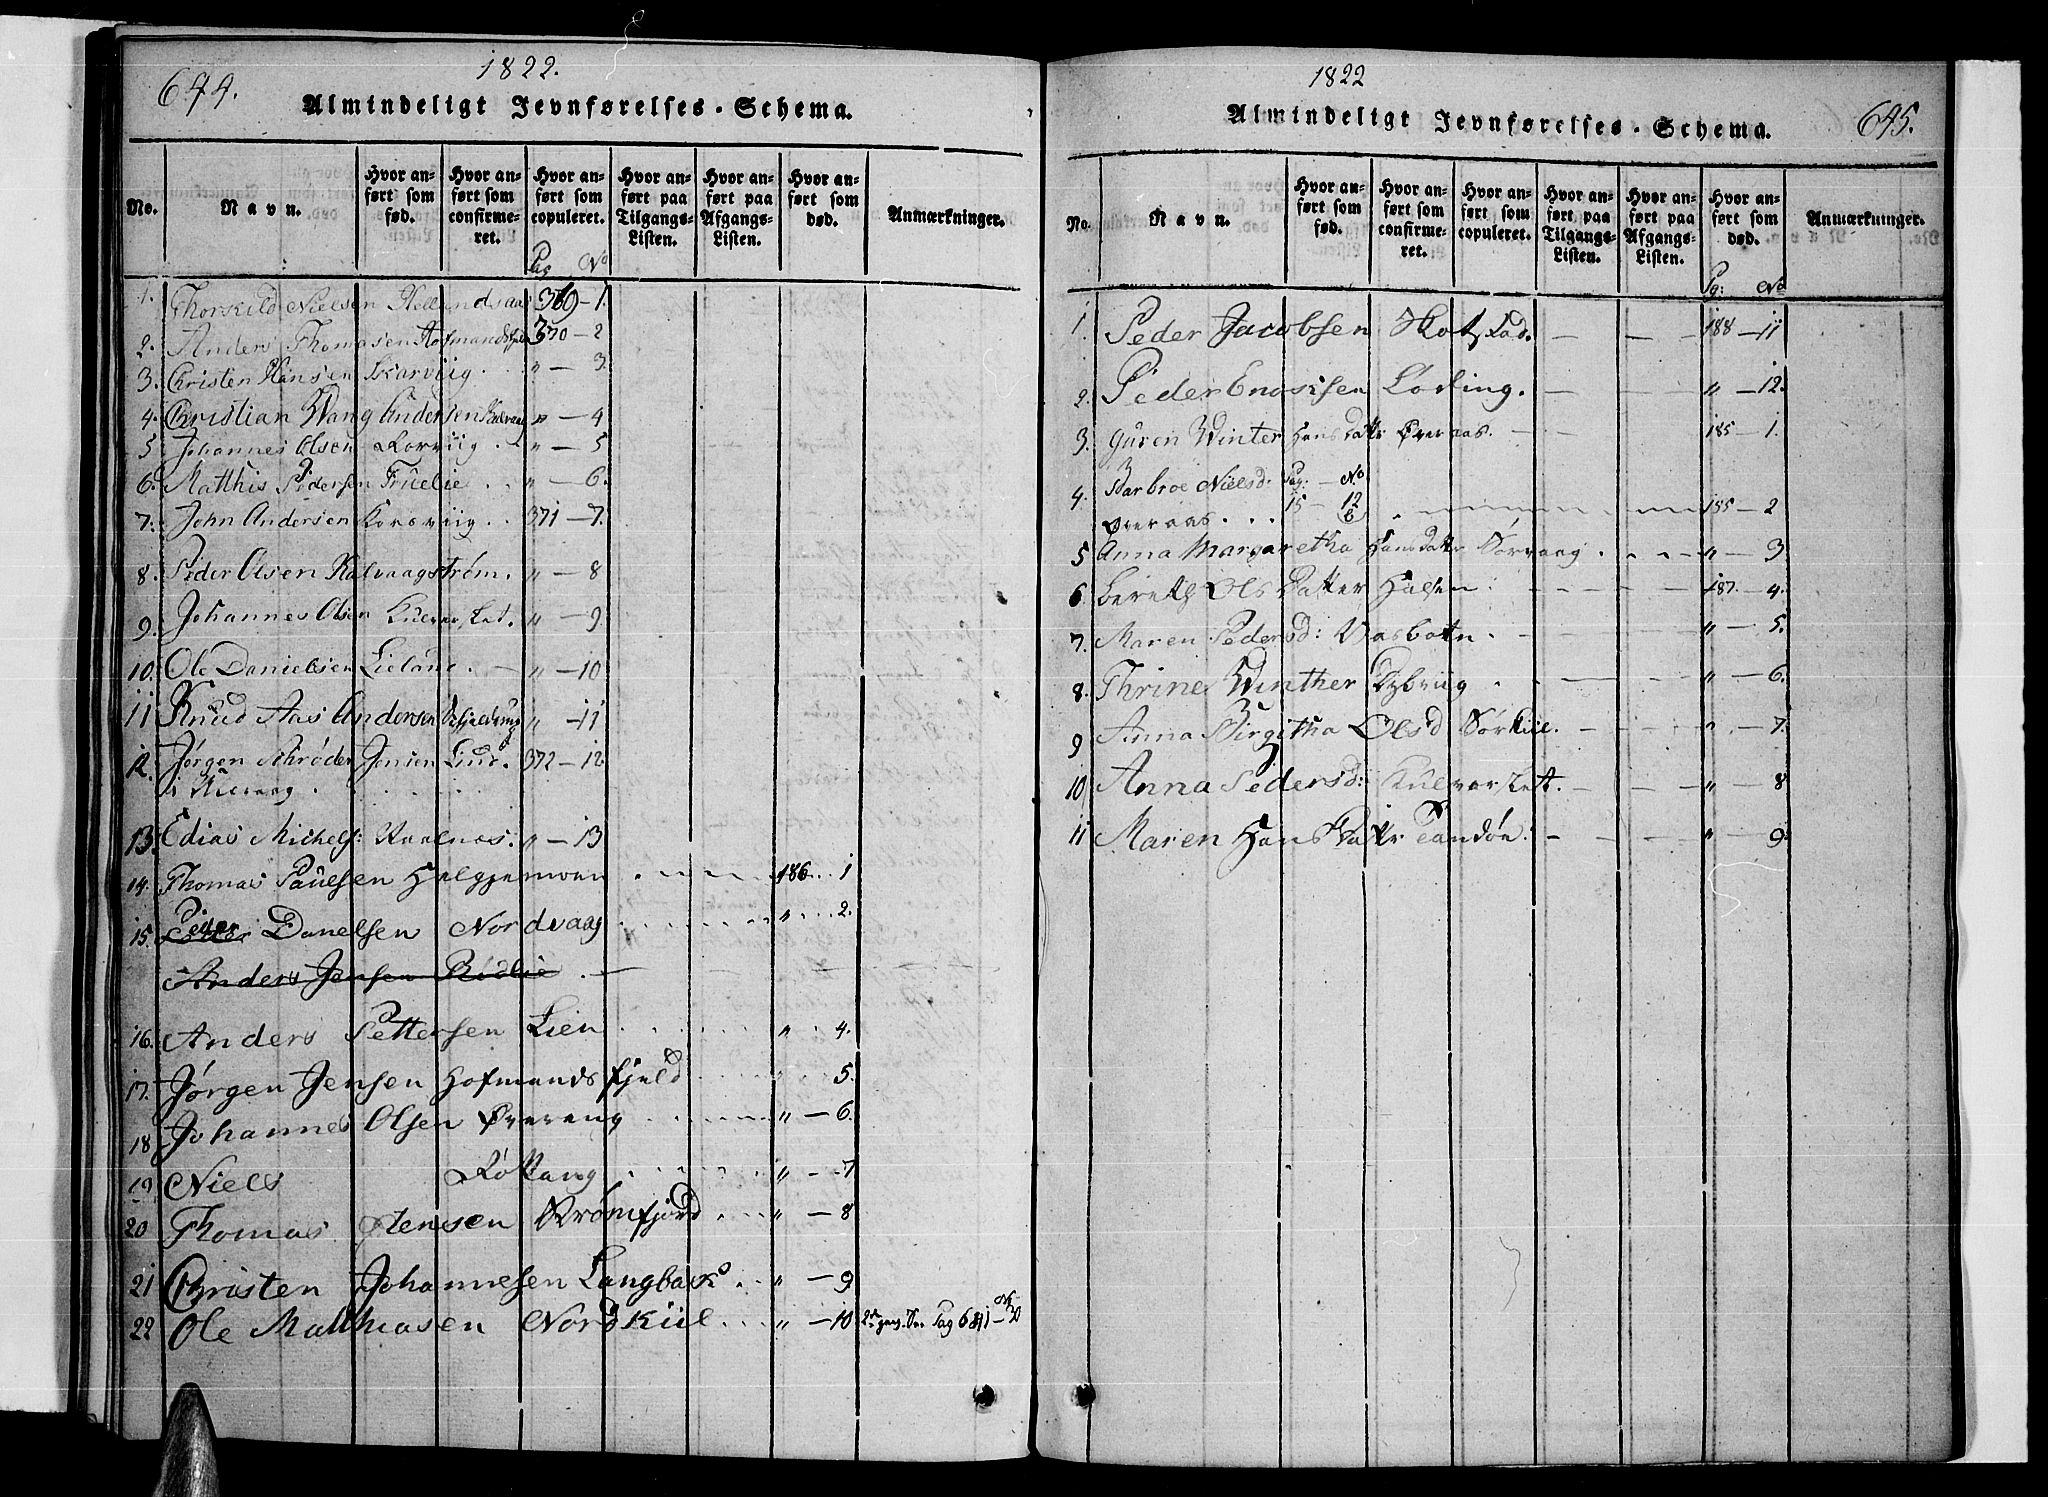 644.
1822.
Almindeligt Jevnførelses-Schema.
No.
Navn.
Hvor anført som fød.
Hvor anført som confirmeret.
Hvor anført som copuleret.
Hvor anført paa Tilgangs-Listen.
Hvor anført paa Afgangs-Listen.
Hvor anført som død.
Anmærkninger.
Pag No
1. Thorkild Nielsen Hellandsaa 369-1.
2. Anders Thomasen Hofmandsfjeld 370-2
3. Christen Hansen " - 3.
4. Christian Wang Andersen " - 4
5 Johannes Olsen " - 5
6. Matthis Pedersen Truelie .. " - 6.
7. John Andersen Korsviig .. 371-7.
8. Peder Olsen Kalvaagstrøm. " - 8
9. Johannes Olsen " - 9
10. Ole Danielsen " - 10
11 Knud Aas Andersen " - 11
12. Jørgen Schrøder Jensen 372-12.
13. Edias Michels: " - 13
14. Thomas Paulsen 186. . 1
15. Peder Danelsen Nordvaag " . . . 2.
Anders Jensen
16. Anders Pettersen Lien " . . 4.
17. Jørgen Jensen Hofmandsfjeld 5.
18 Johannes Olsen Øvereng " - 6.
19 Niels " - 7
20 Thomas Jensen " - 8
21 Christen Johannesen Langbak " - 9
22 Ole Mathiasen Nordkiil . . . " - 10
1822
Almindeligt Jevnførelses-Schema.
645.
No.
Navn.
Hvor anført som fød.
Hvor anført som confirmeret.
Hvor anført som copuleret.
Hvor anført paa Tilgangs-Listen.
Hvor anført paa Afgangs-Listen.
Hvor anført som død.
Anmærkninger.
Pg: No
1 Peder Jacobsen 188 - 11
2. Peder Enoksen Løding. " - 12.
3. Guren Winter Hans Datter Øveraas. 185 - 1.
4. Barbroe Nielsd: Pag: - No
Øveraas . . . 15 - 12 185 - 2
5 Anna Margaretha Hansdatter Sørvaag " - 3
6. Bereth Ols Datter Halsen 187. - 4.
7. Maren Pedersd: Vasbotn. " - 5.
8. Thrine Winther Dybviig " - 6.
9 Anna Birgitha Olsd Sørkiil. " - 7.
10 Anna Pedersd: " - 8
11 Maren Hans Datter " - 9.